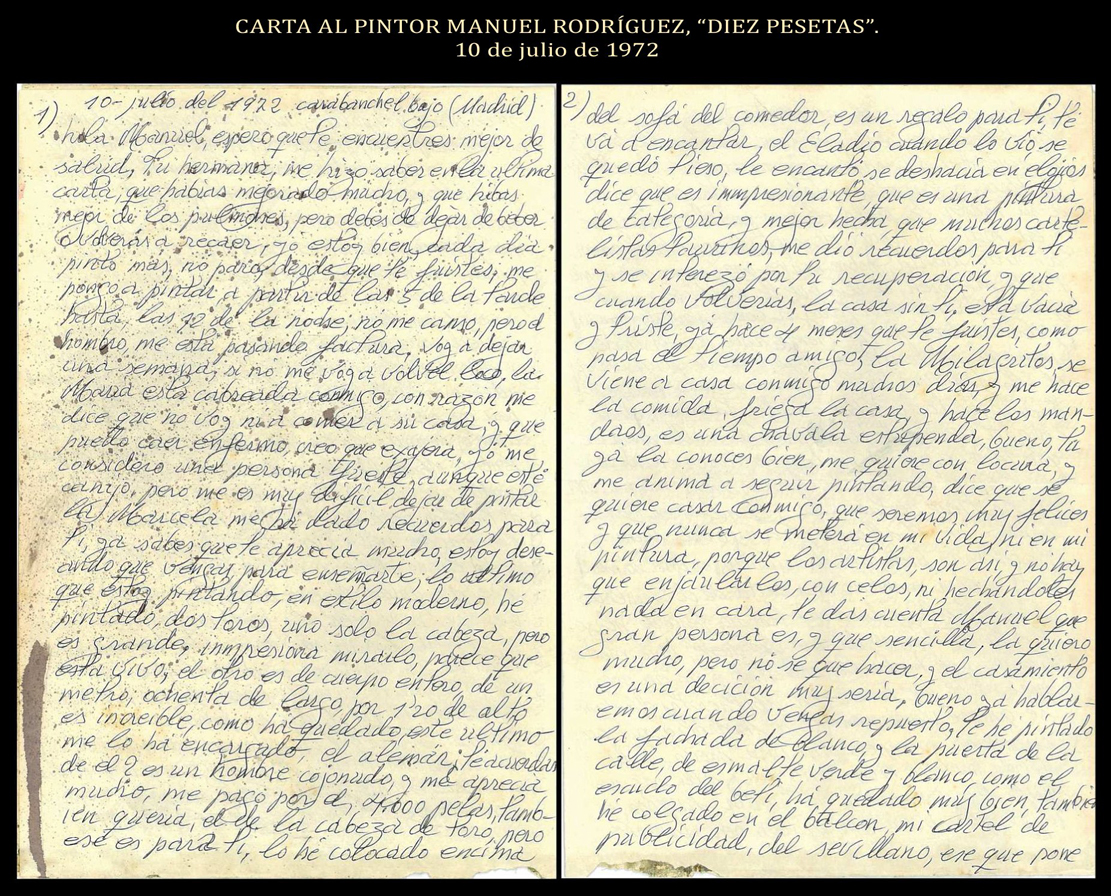 CARTA AL PINTOR MANUEL RODRÍGUEZ, “DIEZ PESETAS”.
10 de julio de 1972
1) 10- julio del 1972 carabanchel bajo (Madrid)
hola Manuel, espero que te encuentres mejor de
salud, tu hermana, me hizo saber en la ultima
carta, que habias mejorado mucho, y que hibas
mejor de los pulmones, pero debes de dejar de beber
o volverás a recaer, yó estoy bien, cada dia
pinto más, no paro, desde que te fuistes, me
pongo a pintar a partir de las 5 de la tarde
hasta las 12 de la nodse, no me canso, pero
hombro, me está pasando factura, voy a dejar
una semana, si no me voy a volvel loco, la
Maria está cabreada conmigo, con razon me
dice que no voy ni a comer a su casa, y que
puedo caer enfermo, creo que exajera, yó me
considero una persona fuerte, aunque esté
canijo, pero me es muy dificil dejar de pintar
la Marcela me há dado recuerdos para
ti, ya sabes que te aprecia mucho, estoy dese-
ando que vengas para enseñarte, lo ultimo
que estoy pintando, en estilo moderno, hé
pintado, dos toros uno solo la cabeza, pero
es grande, inmpresiona mirarlo, parece que
está vivo, el otro es de cuerpo entero, de un
metro, ochenta de largo, por 1'20 de alto
es increible, como há quedado, este ultimo
me lo há encargado, el alemán, te acuerdas
de el? es un hombre cojonado, y me aprecia
mucho, me pagó por el, 4000 pelas, tamb-
ien queria, el de la cabeza de toro, pero
ese es para ti, lo hé colocado encima
2) del sofá del comedor, es un regalo para ti, té
vá a encantar, el Eladio cuando lo vio se
quedó tieso, le encantó se deshacia en elojios
dice que es inmpresionante, que es una pintura
de categoria, y mejor hecha que muchos carte-
listas taurinos, me dió recuerdos para ti
y se interezó por tu recuperación, y que
cuando volverias, la casa sin ti, está vacia
y triste, yá hace 4 meses que te fuistes, como
pasa el tiempo amigo, la Milagritos, se
viene a casa conmigo muchos dias, y me hace
la comida, friega la casa, y hace los man-
daos, es una chavala estupenda, bueno, tu
ya la conoces bien, me quiere con locura, y
me anima a seguir pintando, dice que se
quiere casar conmigo, que seremos muy felices
y que nunca se meterá en mi vida, ni en mi
pintura, porque los artistas, son asi, y no hay
que enjaularlos, con celos, ni hechandoles
nada en cara, te das cuenta Manuel que
gran persona es, y que sencilla, la quiero
mucho, pero no se que hacer, y el casamiento
es una decicion muy seria, bueno yá hablar-
emos cuando vengas repuesto, te hé pintado
la fachada de blanco, y la puerta de la
calle, de esmalte verde y blanco, como el
escudo del beti, há quedado muy bien, tambien
hé colgado en el balcon mi cartel de
publicidad, del sevillano, ese que pone